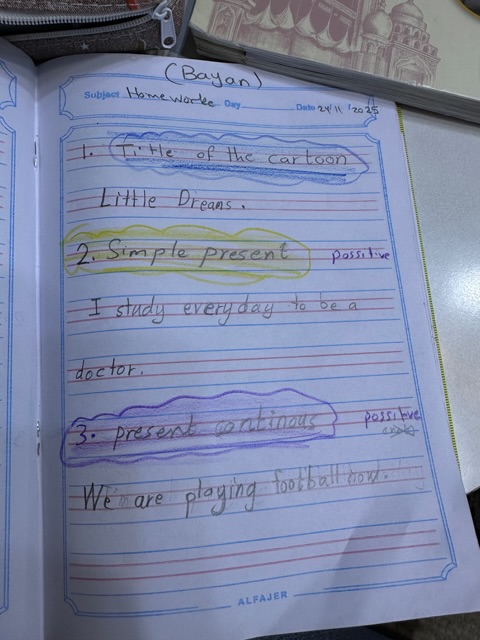 (Bayan)
Subject Homeworke Day Date 24/11/2025
1. Title of the cartoon
Little Dreams.
2. Simple present possitive
I study everyday to be a
doctor.
3. present continous possitive
We are playing football now.
ALFAJER